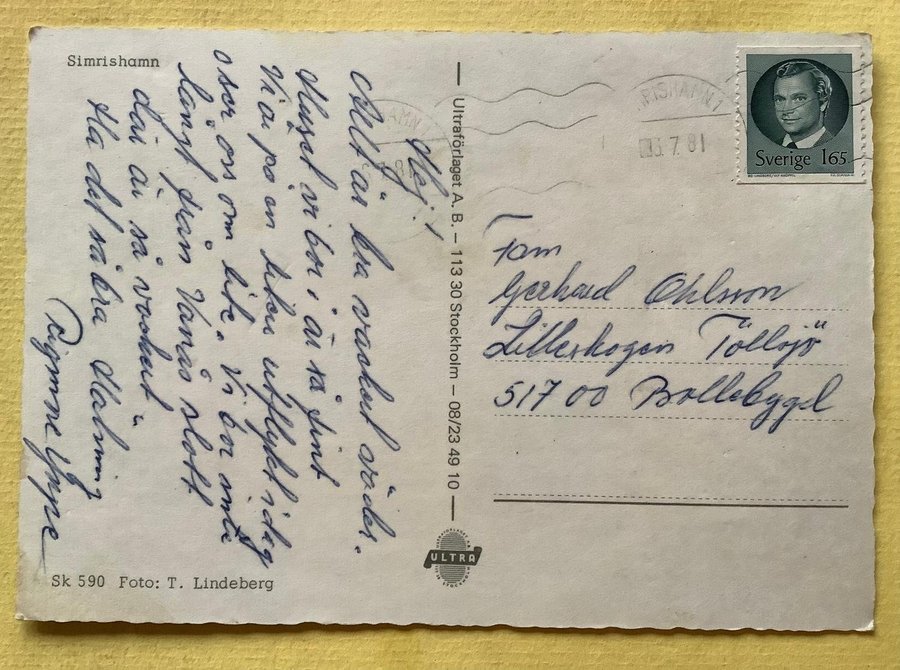 Simrishamn
Hej!
Allt är bra vackert väder.
Huset vi bor i är så fint
Vi a på en liten utflykt idag
o ser oss om lite. Vi bor inte
långt från Vanås slott
där är så vackert
Ha det så bra
Sk 590 Foto: T. Lindeberg
Ultraförlaget A. B. – 113 30 Stockholm – 08/23 49 10
ULTRA
RISHAMN 1
3.7.81
Sverige 165
Fam
Gerhard Ohlsson
Lilleskogen Töllsjö
517 00 Bollebygd